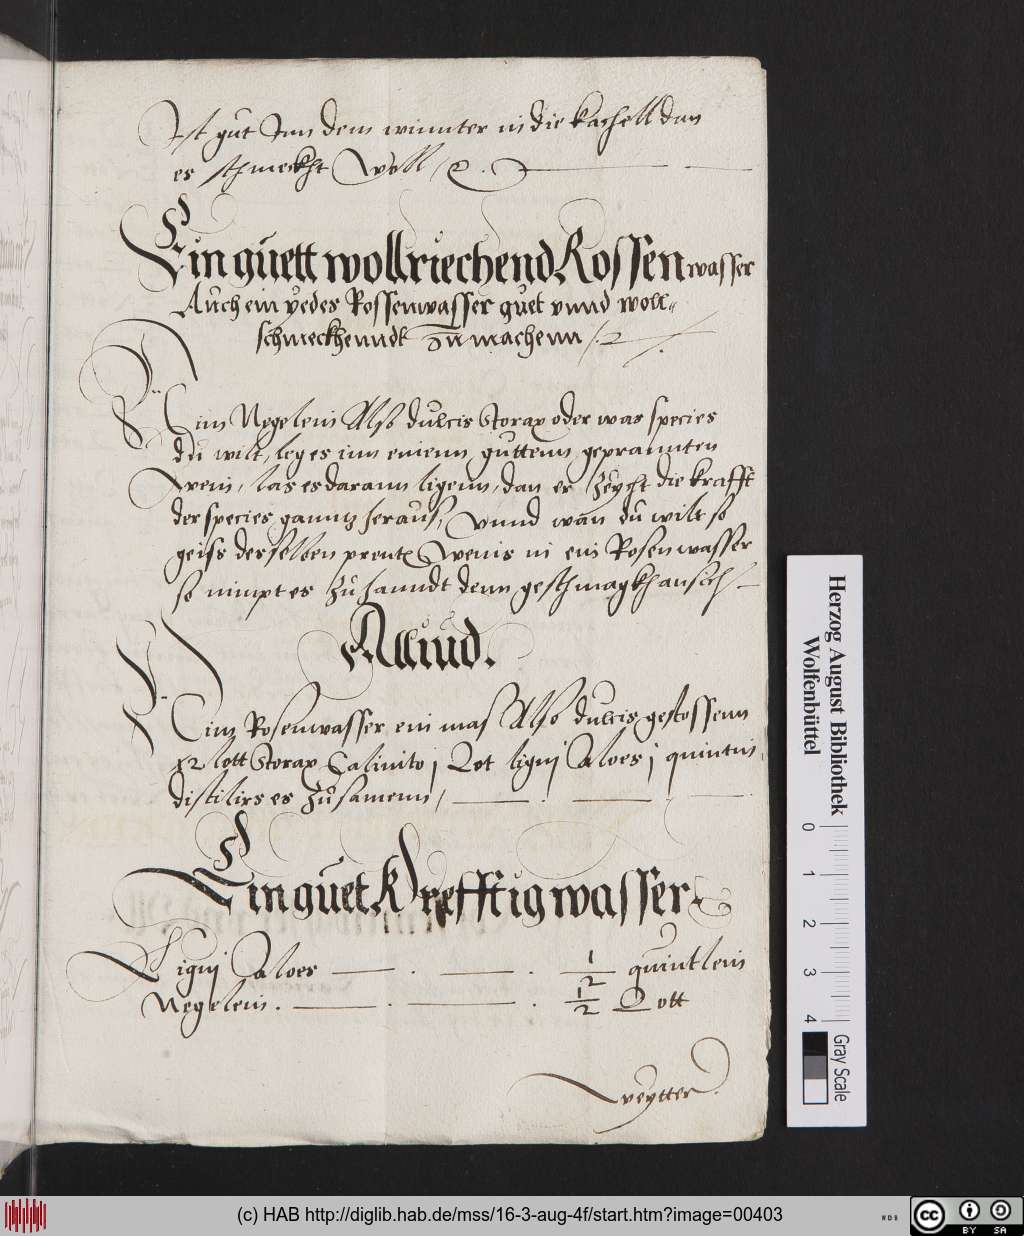 Ist gut Inn dem winnter in die kachell dan
es schmeckht Woll
Ein guett wollriechend Rossen wasser
Auch ein yedes Rossenwasser guet vnnd woll„
schmeckhenndt Zu machenn
Nim Negelein Also dulcis Storax oder was species
du wilt, leg es inn einenn guttenn geprannten
Wein, las es darann ligenn, dan er Zeycht die krafft
der species ganntz heraus, vnnd wan du wilt so
geiss desselben prentz Weins in ein Rosen wasser
so nimpt es Zu hanndt denn geschmagkh an sich
Alliud.
Nim Rosenwasser ein mas Also dulcis gestossenn
lott Storax Calimito j Lot lignj Aloes j quintin,
distilirs es Zusamenn,
Ein guet Krefftig wasser
Lignj Aloes 1/2 quintlein
Negelein. 1/2 Lott
Weytter.
Herzog August Bibliothek
Wolfenbüttel
0 1 2 3 4
Gray Scale
(c) HAB http://diglib.hab.de/mss/16-3-aug-4f/start.htm?image=00403
cc BY SA